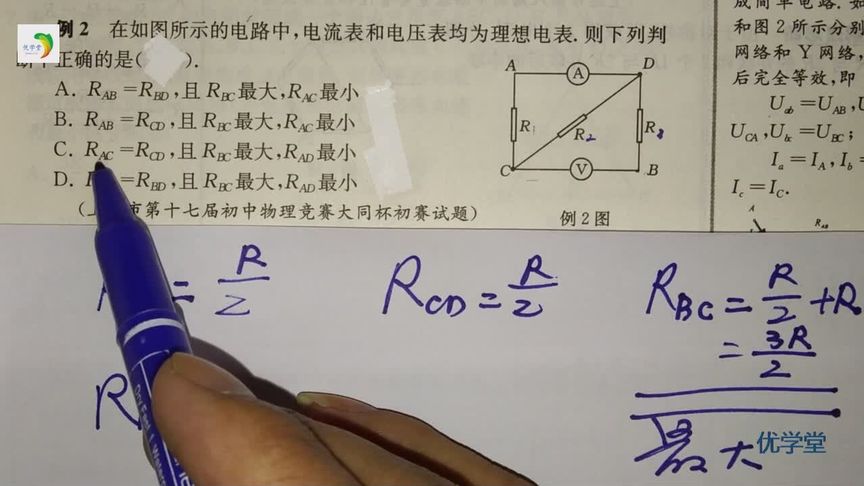 优学堂
例2 在如图所示的电路中,电流表和电压表均为理想电表.则下列判
正确的是( ).
A. R_AB=R_BD,且 R_BC最大,R_AC最小
B. R_AB=R_CD,且 R_BC最大,R_AC最小
C. R_AC=R_CD,且 R_BC最大,R_AD最小
D. =R_BD,且 R_BC最大,R_AD最小
市第十七届初中物理竞赛大同杯初赛试题)
A
A
D
R1
R2
R3
C
V
B
例2图
成简单电路.如
和图2所示分别
网络和Y网络,
后完全等效,即
U_ab=U_AB,U
U_CA,U_bc=U_BC;
I_a=I_A,I_b=
I_c=I_C.
R_AB
= R/2
R_CD = R/2
R_BC = R/2 + R
= 3R/2
R
最大
优学堂